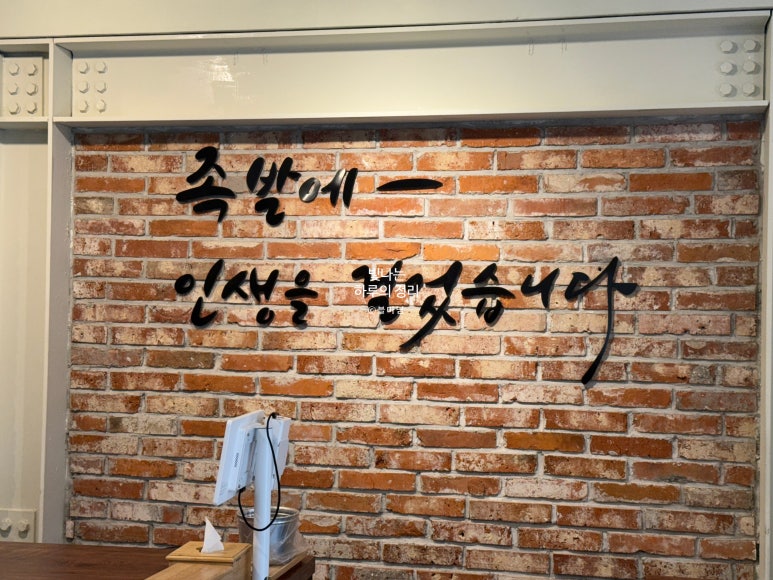 족발에
인생을 걸었습니다
빛나는
하루의 정리